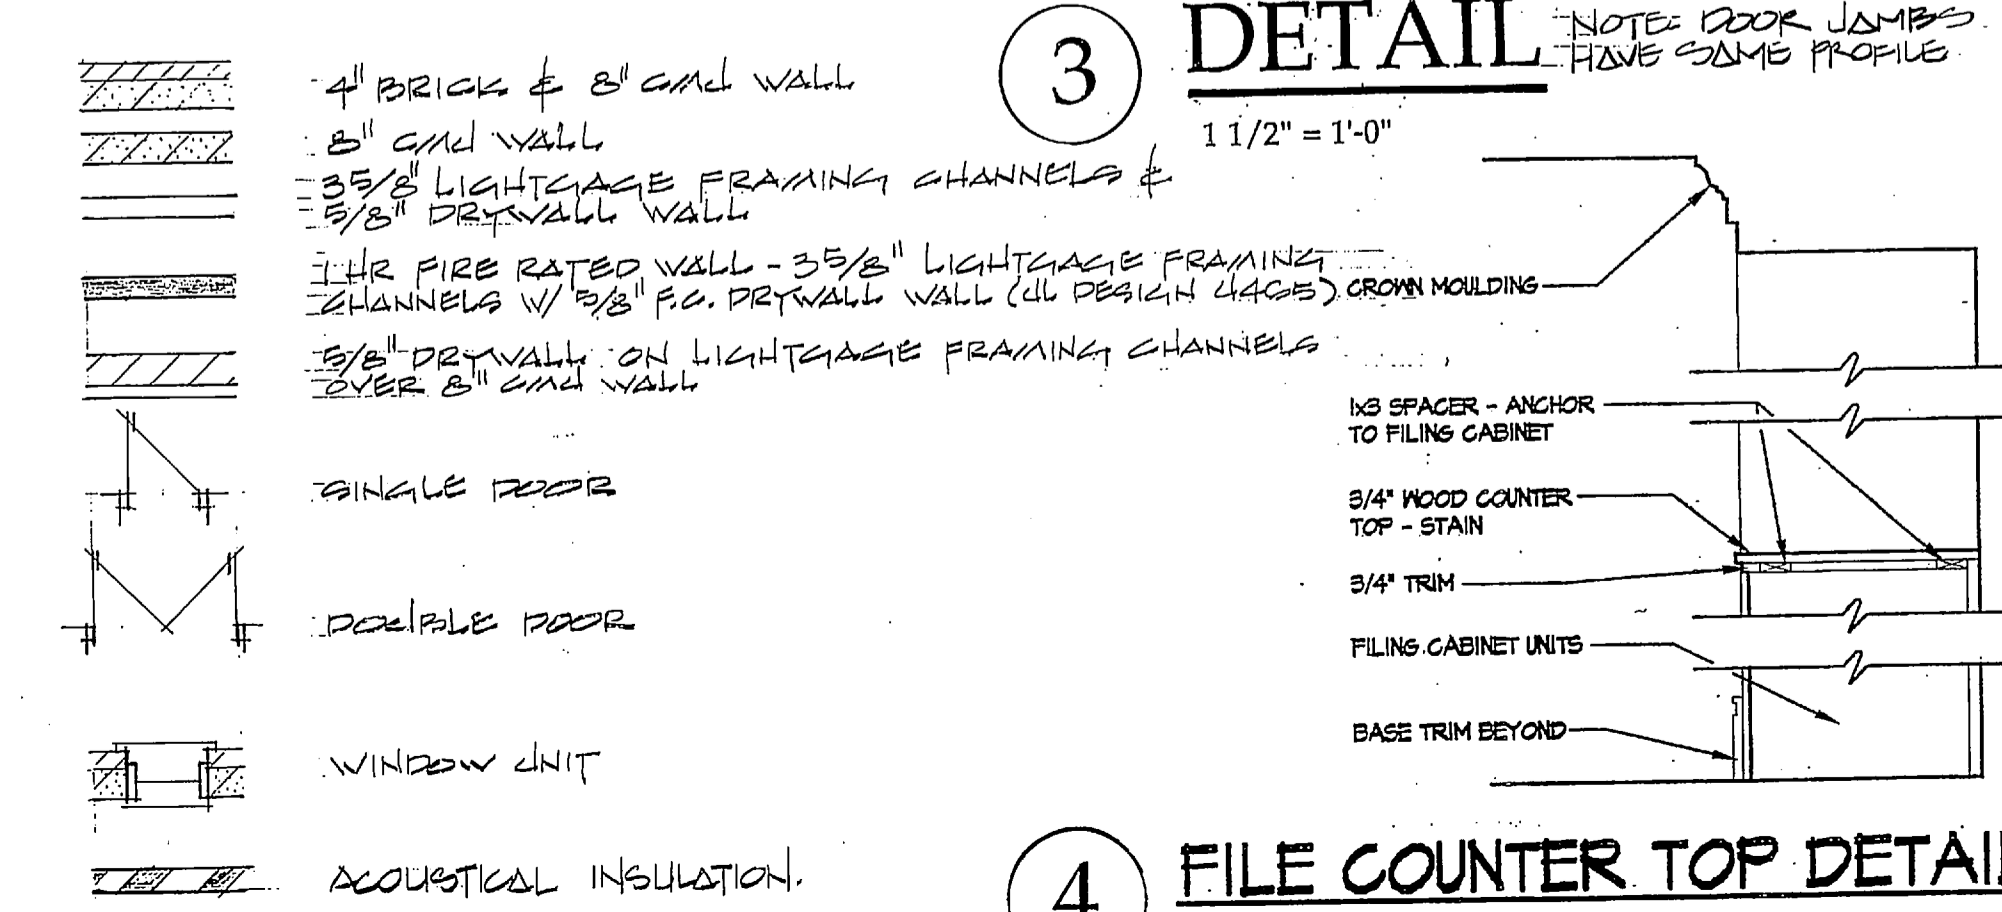 4" BRICK & 8" CMU WALL
8" CMU WALL
3 5/8" LIGHTGAGE FRAMING CHANNELS &
5/8" DRYWALL WALL
1 HR FIRE RATED WALL - 3 5/8" LIGHTGAGE FRAMING
CHANNELS W/ 5/8" F.C. DRYWALL WALL (UL DESIGN U465)
5/8" DRYWALL ON LIGHTGAGE FRAMING CHANNELS
OVER 8" CMU WALL
SINGLE DOOR
DOUBLE DOOR
WINDOW UNIT
ACOUSTICAL INSULATION.
3
DETAIL
NOTE: DOOR JAMBS
HAVE SAME PROFILE
1 1/2" = 1'-0"
CROWN MOULDING
1x3 SPACER - ANCHOR
TO FILING CABINET
3/4" WOOD COUNTER
TOP - STAIN
3/4" TRIM
FILING CABINET UNITS
BASE TRIM BEYOND
4
FILE COUNTER TOP DETAIL